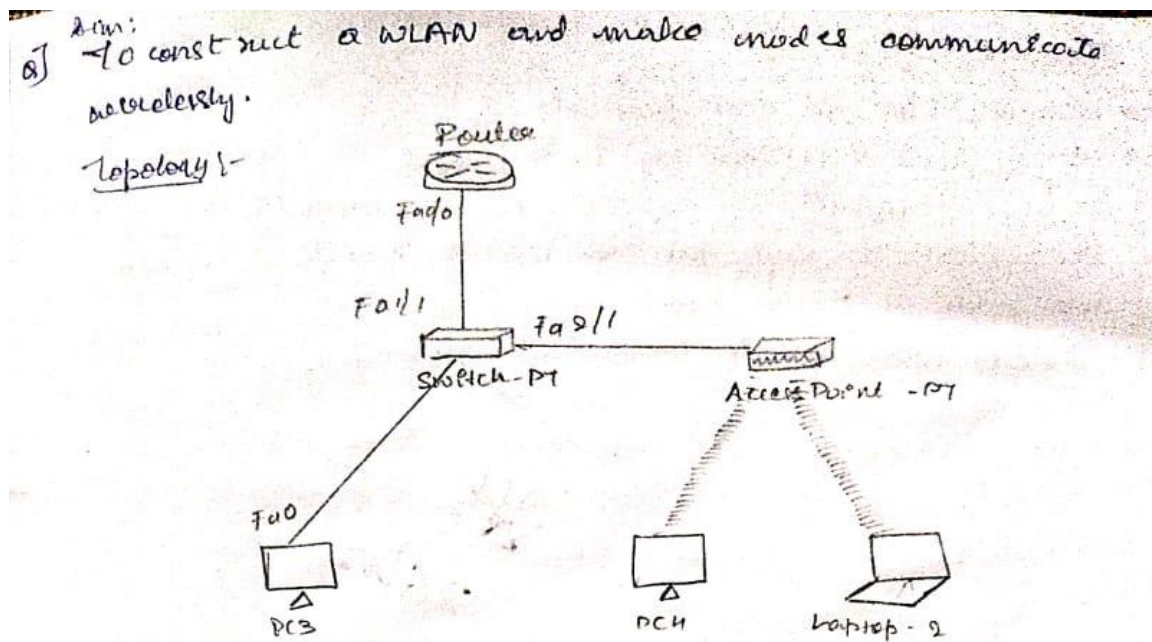 Aim:
Q] To construct a WLAN and make nodes communicate
Topology :-
Router
Fa0/0
Fa1/1
Fa2/1
Switch-PT
AccessPoint -PT
Fa0
PC3
PC4
Laptop - 2